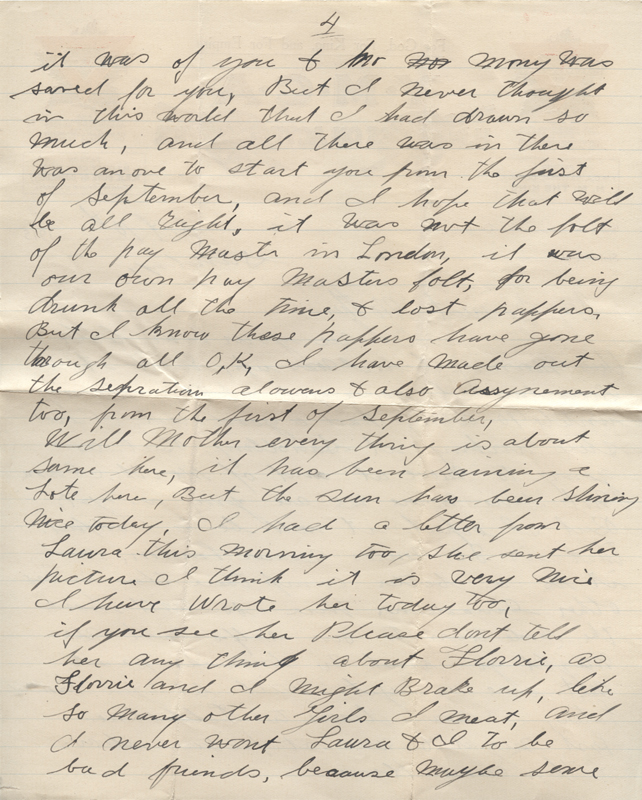 4
it was of you & no mony was
saved for you, But I never thought
in this world that I had drawn so
much, and all there was in there
was anove to start you from the first
of September, and I hope that will
be all right, it was not the folt
of the pay Master in London, it was
our own pay Masters folt, for being
drunk all the time, & lost pappers,
But I know these pappers have gone
through all O,K, I have made out
the sepration alowens & also Assynement
too, from the first of September,
Will Mother every thing is about
same here, it has been raining a
lote here, But the sun has been shining
nice today, I had a letter from
Laura this morning too, she sent her
picture I think it is very nice
I have wrote her today too,
if you see her Please dont tell
her any thing about Florrie, as
Florrie and I might Brake up, like
so many other Girls I meat, and
I never wont Laura & I to be
bad friends, because maybe some